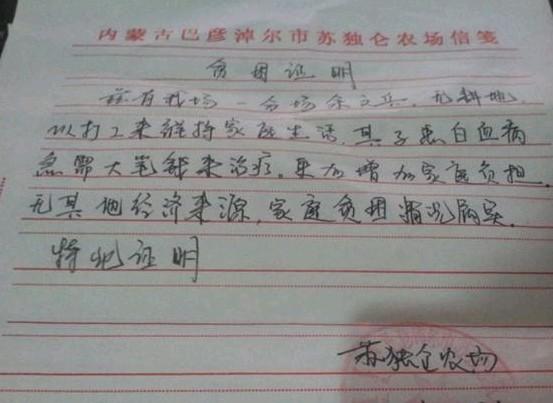 内蒙古巴彦淖尔市苏独仑农场信笺
贫困证明
兹有我场一分场余文兵,无耕地,
以打工来维持家庭生活,其子患白血病
急需大笔钱来治疗,更加增加家庭负担,
无其他经济来源,家庭贫困情况属实。
特此证明
苏独仑农场